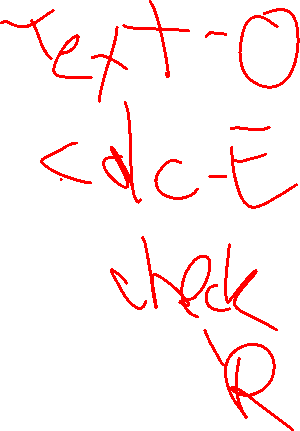 Text-O
<dc-E
check
R